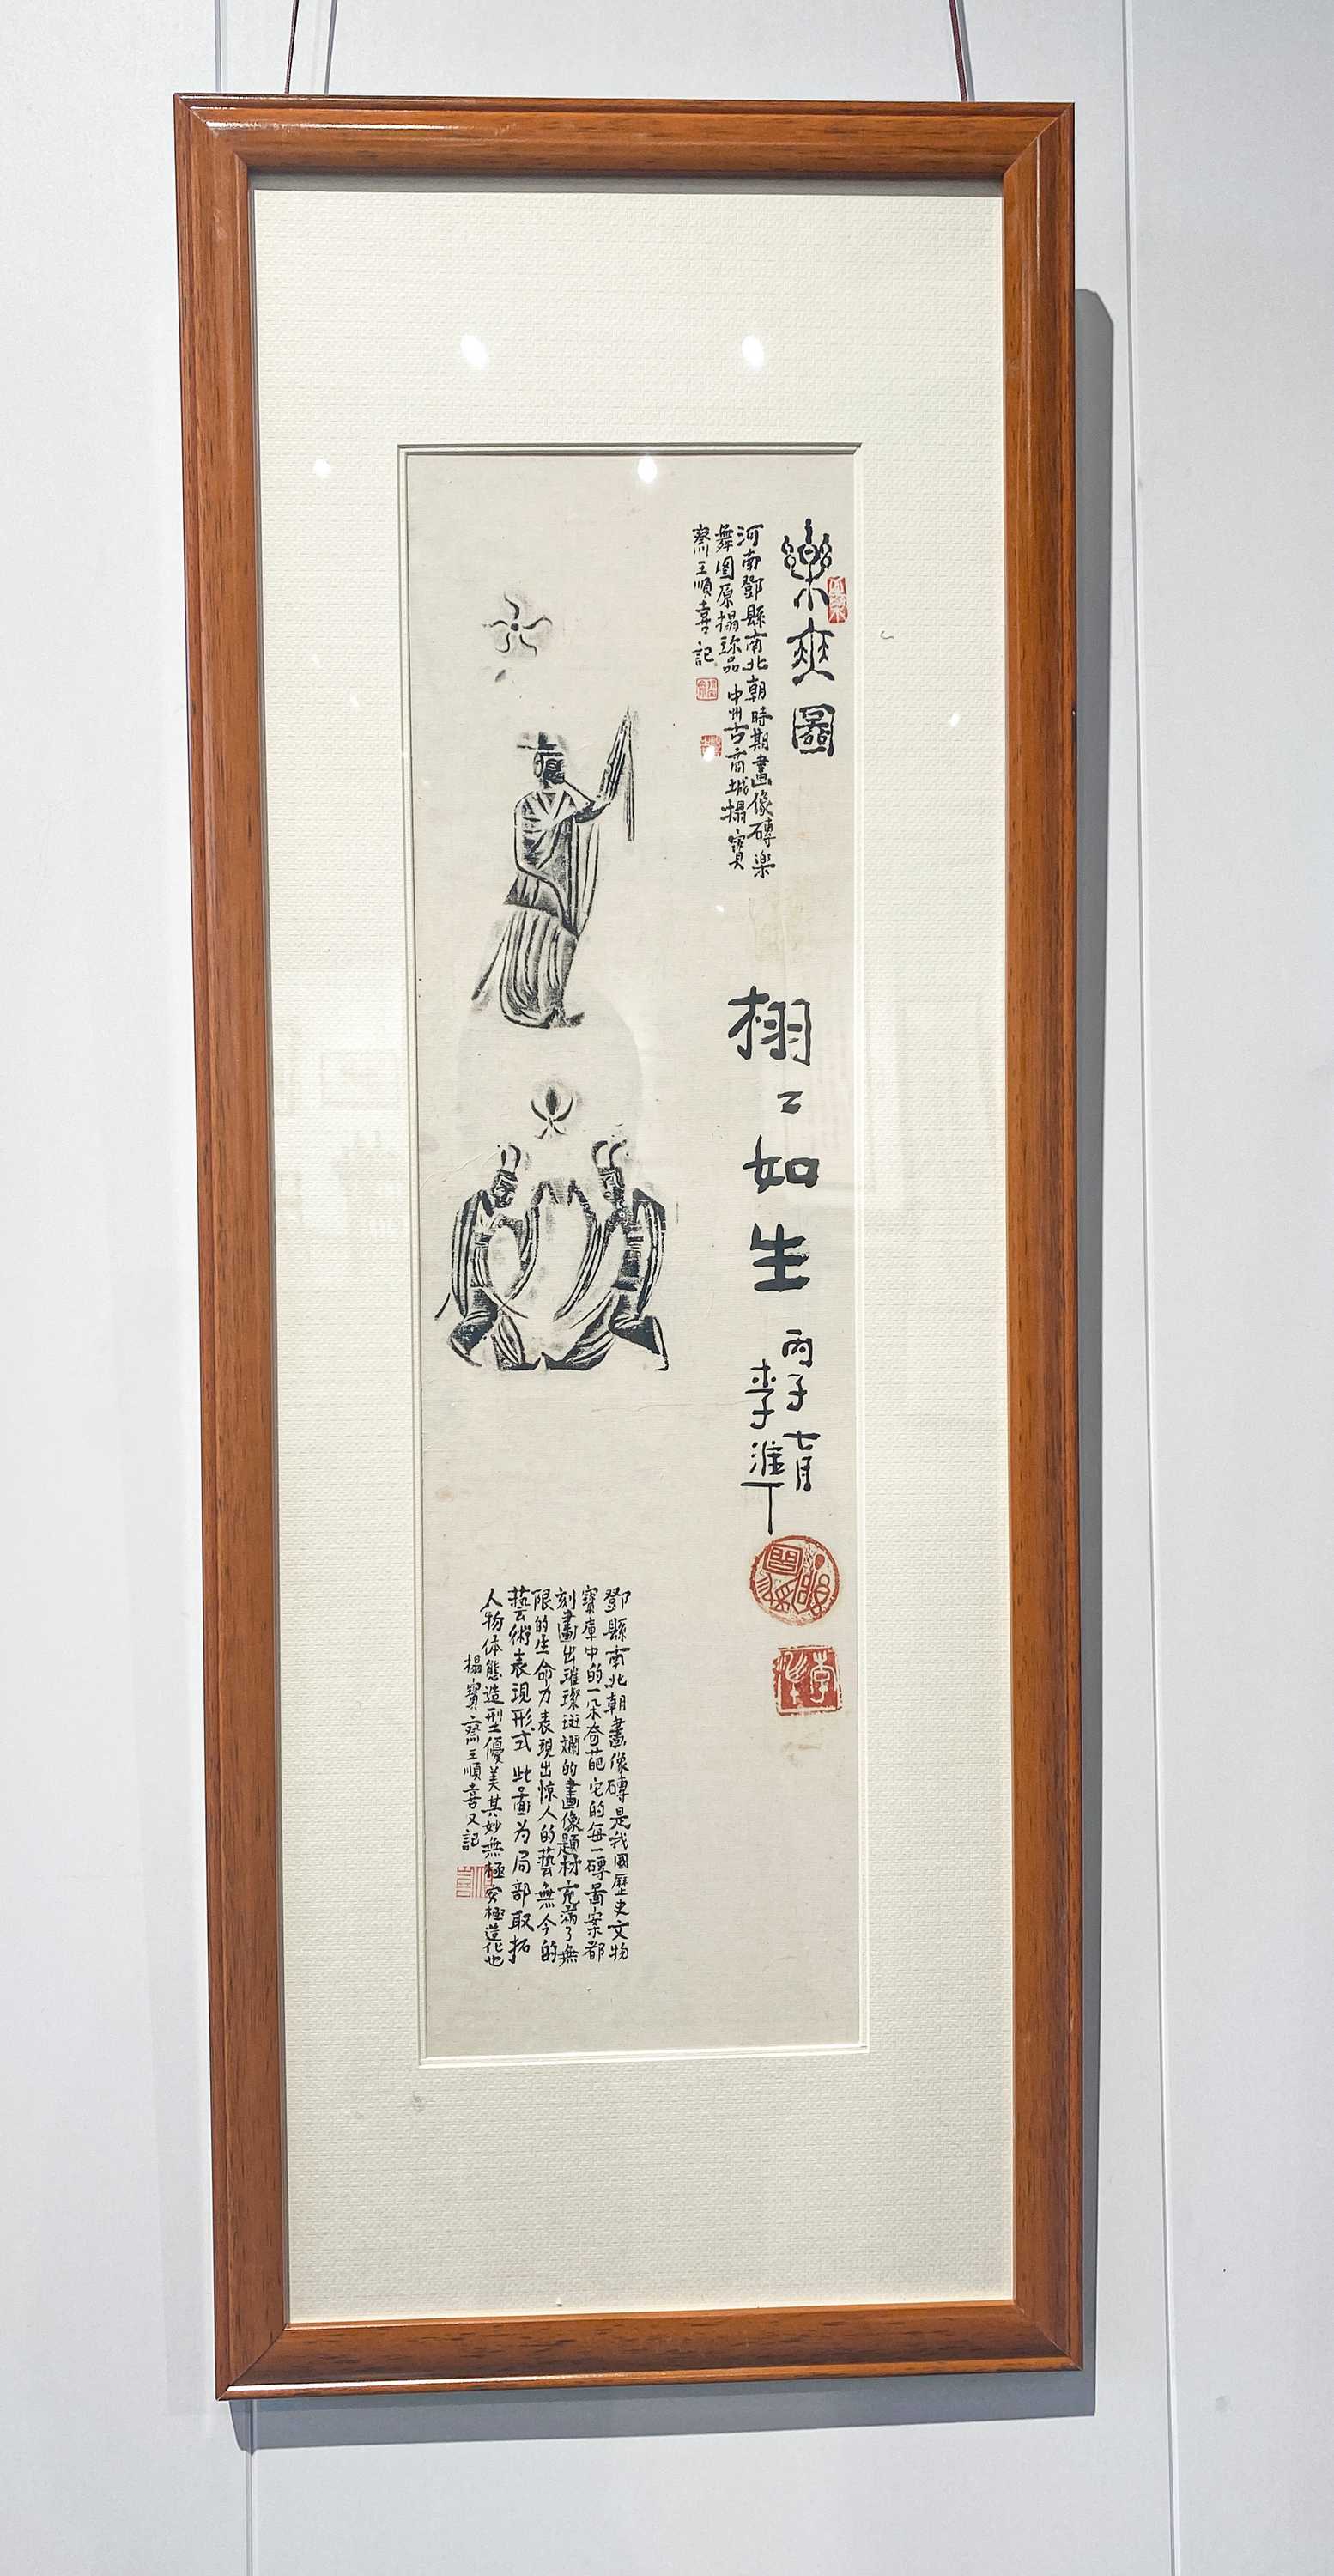 樂舞圖
河南鄧縣南北朝時期畫像磚樂
舞圖原搨珎品 中州古商城搨寶
齋王順喜記
栩〻如生
丙子七月
李準
鄧縣南北朝畫像磚是我國歷史文物
寶庫中的一朵奇葩它的每一磚畫案都
刻畫出璀璨斑斕的畫像題材充滿了無
限的生命力表現出惊人的藝無今的
藝術表現形式 此畫为局部取拓
人物体態造型優美其妙無極安極造化也
搨寶齋王順喜又記
李準